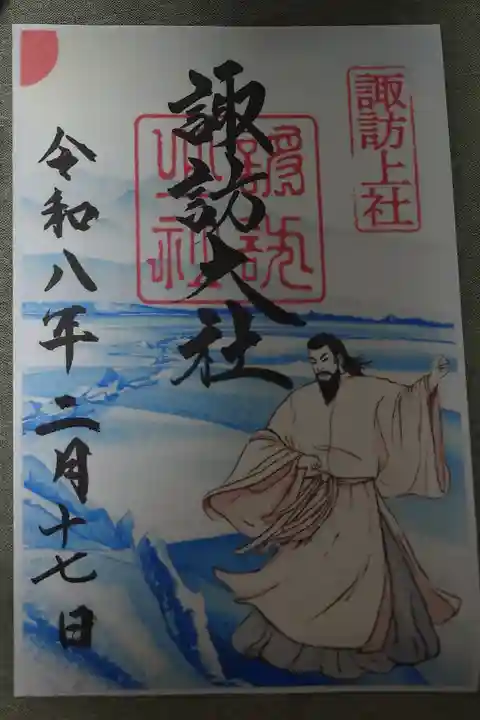 諏訪上社
諏訪大社
令和八年二月十七日